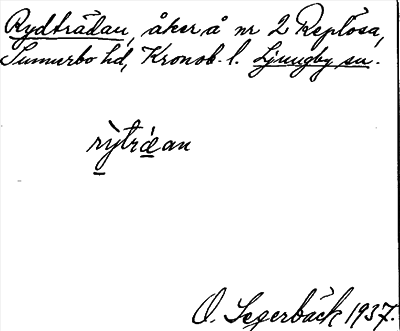 Rydträdan, åker å nr 2 Replösa,
Sunnerbo hd, Kronob. l. Ljungby sn.
rỳtrá̱an
O. Segerbäck 1937.